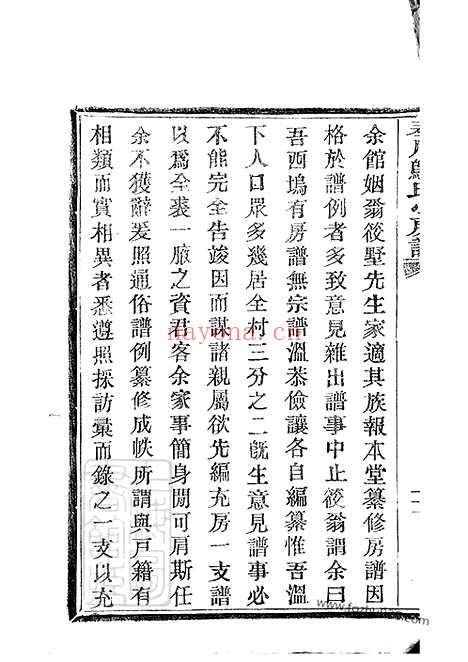 余館姻翁筱墅先生家適其族報本堂纂修房譜因
格於譜例者多致意見雜出譜事中止筱翁謂余曰
吾西塢有房譜無宗譜溫恭儉讓各自編纂惟吾溫
下人口眾多幾居全村三分之二旣生意見譜事必
不能完全告竣因而謀諸親屬欲先編充房一支譜
以爲全裘一腋之資君客余家事簡身閒可肩斯任
余不獲辭爰照通俗譜例纂修成帙所謂與戶籍有
相類而實相異者悉遵照採訪彙而錄之一支以充
nayona.cn